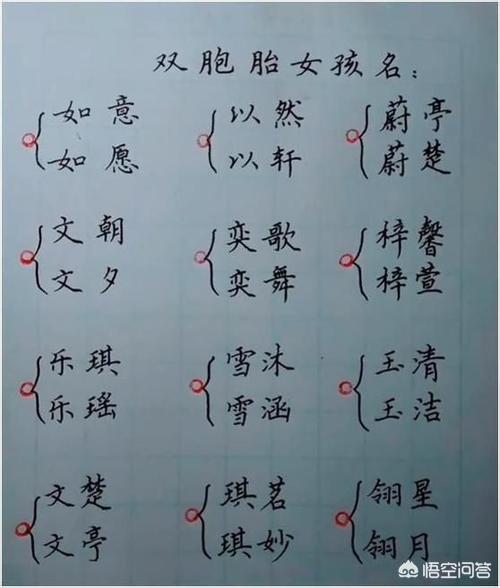 双胞胎女孩名：
如意 以然 蔚亭
如愿 以轩 蔚楚
文朝 奕歌 梓馨
文夕 奕舞 梓萱
乐琪 雪沐 玉清
乐瑶 雪涵 玉洁
文楚 琪茗 翎星
文亭 琪妙 翎月
悟空问答